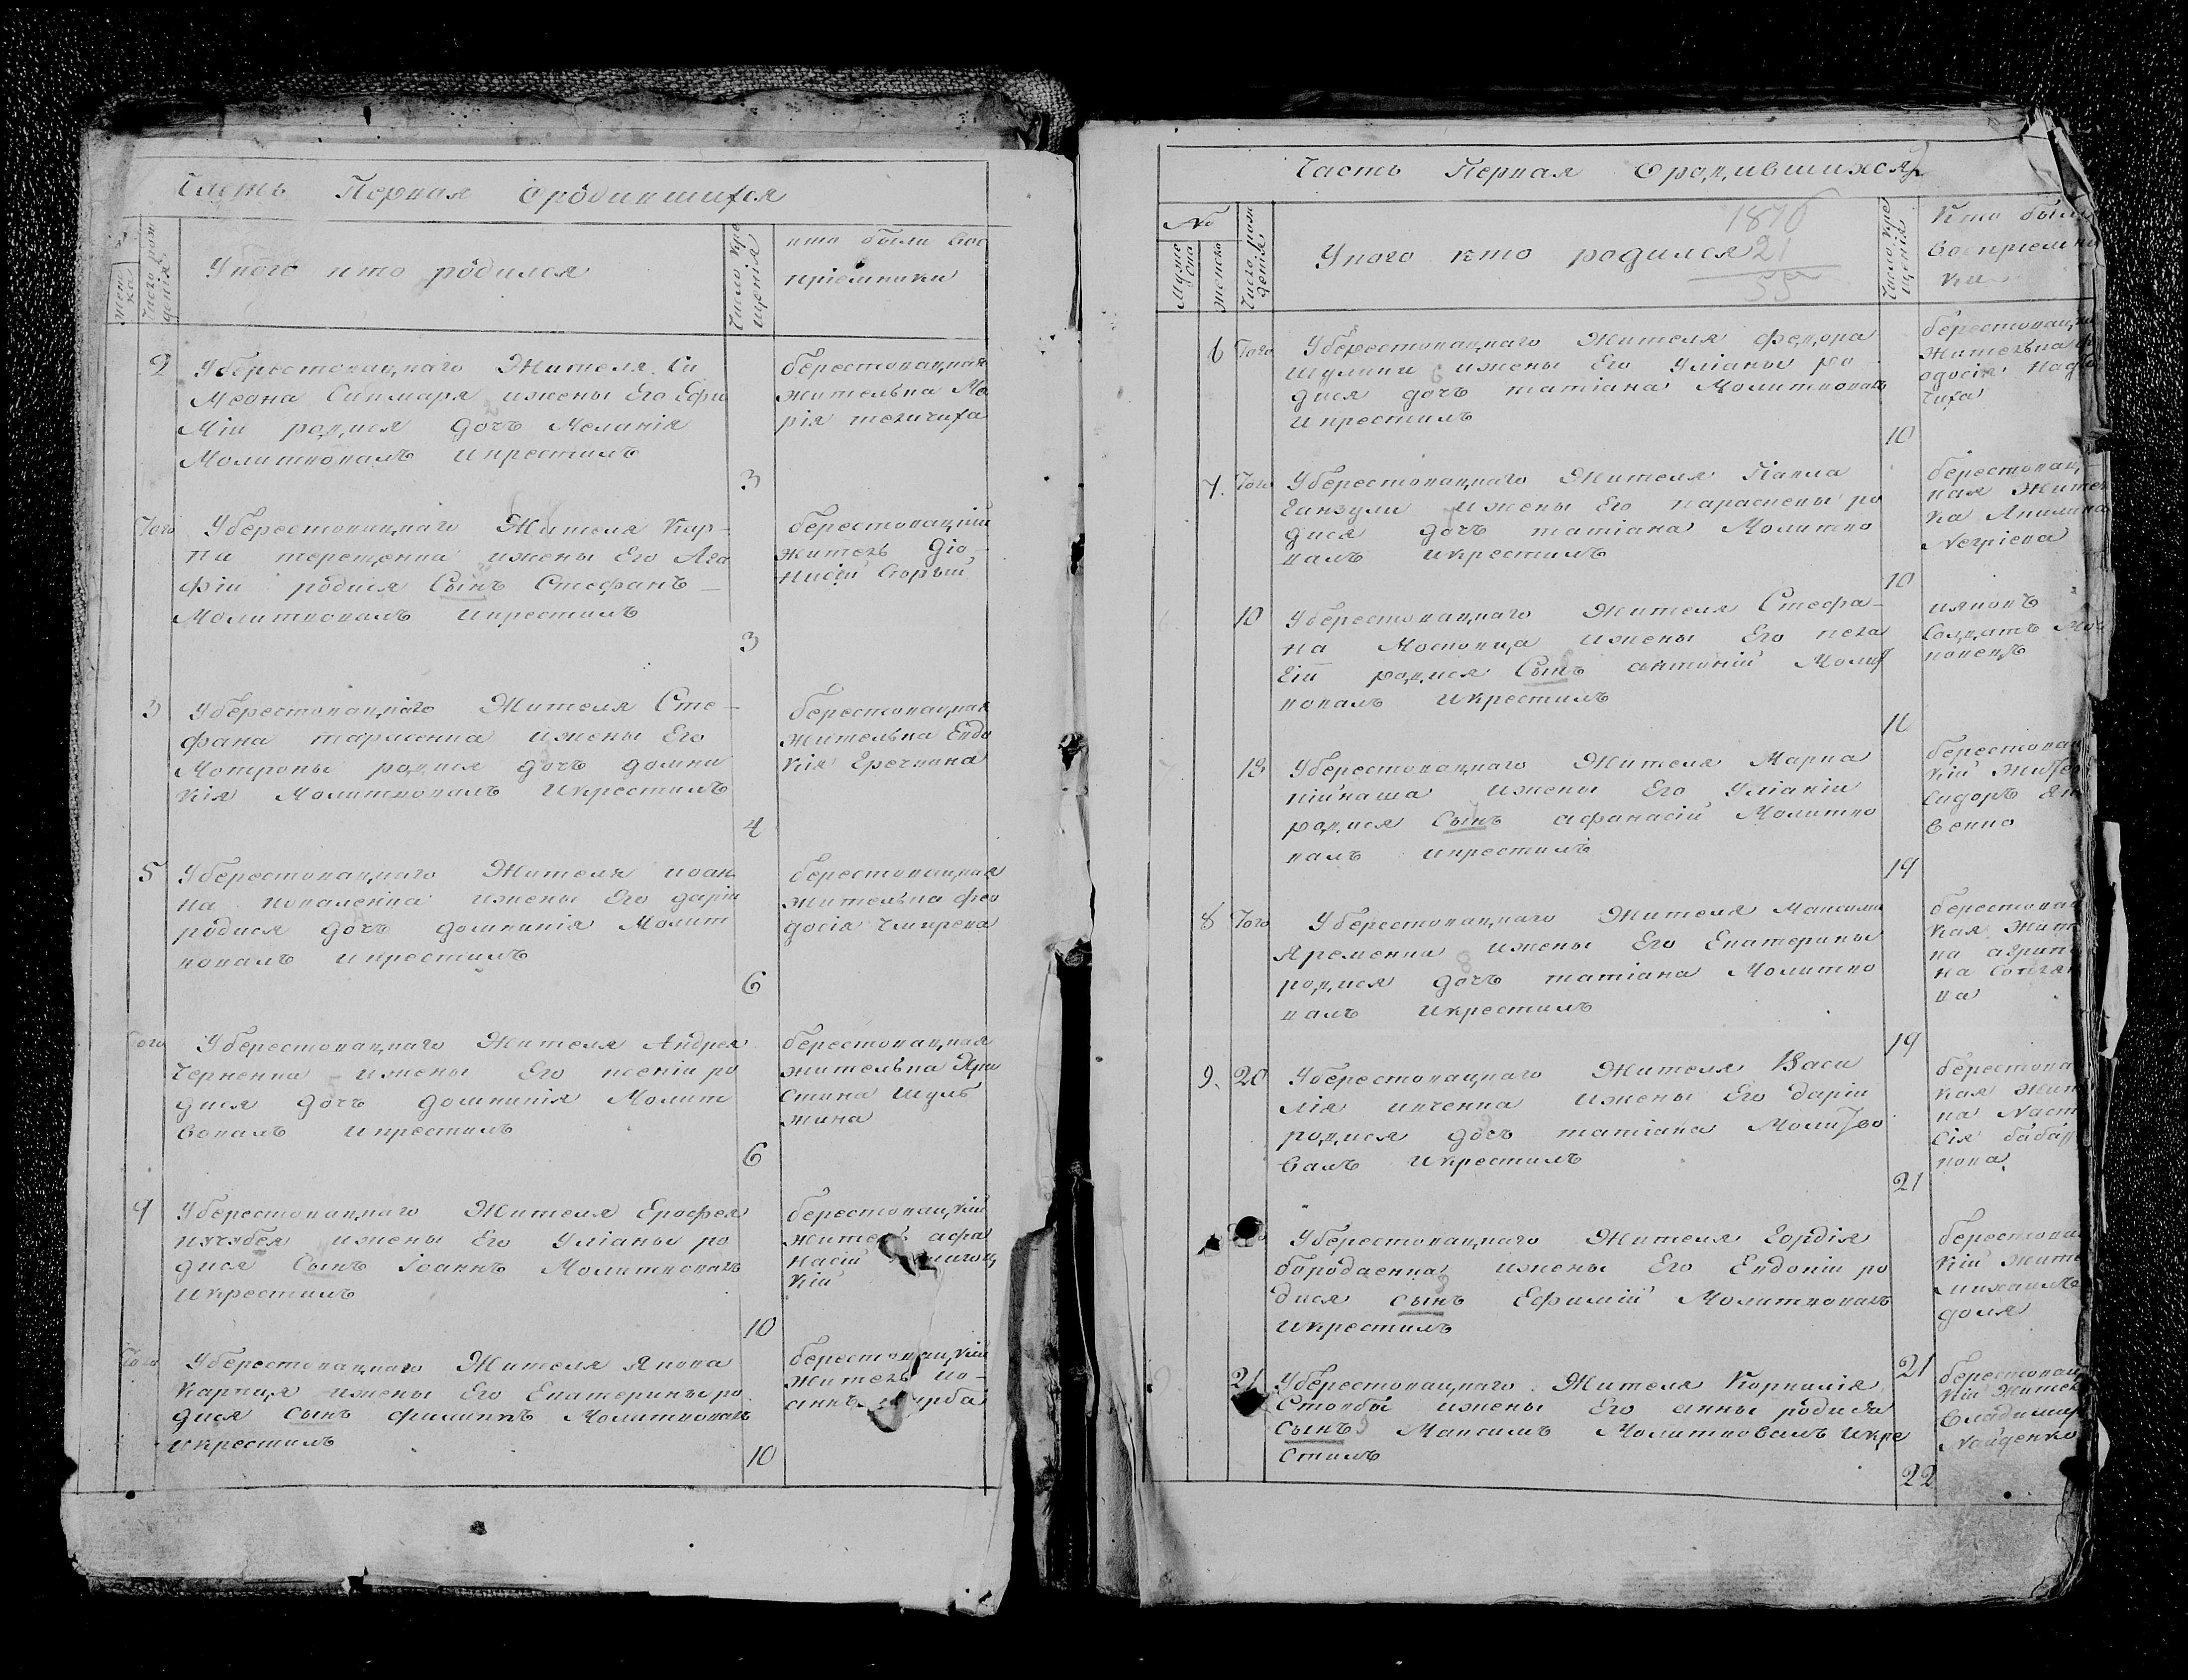 Часть Первая о родившихся
жене
ка
Число рож
дения
У кого кто родился
Число кре
щения
кто были вос
приемники
2
У берестовацкаго Жителя Си
меона Сипмаря и жены Его Ефи
мiи родися дочъ Меланiя
Молитвовалъ и крестилъ
3
берестовацкая
жителька Ма
рiя
Того
У берестовацкаго Жителя Кар-
па терещенка и жены Его Ага
фiи родися Сынъ Стефанъ
Молитвовалъ и крестилъ
3
берестовацкiй
житель Дiо-
нисiй Скорый
3
У берестовацкаго Жителя Сте-
фана тарасенка и жены Его
Мотроны родися дочъ домни
кiя Молитвовалъ и крестилъ
4
берестовацкая
жителька Евдо
кiя
5
У берестовацкаго Жителя иоан
на коваленка и жены Его дарiи
родися дочъ домникiя Молит
вовалъ и крестилъ
6
берестовацкая
жителька фео
досiя
Того
У берестовацкаго Жителя Андрея
Черненка и жены Его ксенiи ро
дися дочъ домникiя Молит
вовалъ и крестилъ
6
берестовацкая
жителька Хри
стина Шуль
жина
9
У берестовацкаго Жителя Ерофея
и жены Его Улiаны ро
дися Сынъ Iоаннъ Молитвовалъ
и крестилъ
10
берестовацкiй
житель афа
насiй
кiй
Того
У берестовацкаго Жителя Якова
Карпця и жены Его Екатерины ро
дися сынъ филиппъ Молитвовалъ
и крестилъ
10
берестовацкiй
житель Ио-
аннъ
Часть Первая о родившихся
№
Мужес
ска
женска
Число рож
дения
У кого кто родился
1870
21
55
Число кре
щения
Кто были
восприемни
ки
6 Того
У берестовацкаго Жителя федора
шулики и жены Его Улiаны ро
дися дочъ татiана Молитвовалъ
и крестилъ
10
берестовацка
жителька фе
одосiя
7. Того
У берестовацкаго Жителя Павла
Ганзули и жены Его параскевы ро
дися дочъ татiана Молитво
валъ и крестилъ
10
берестовац
кая Жител
ка Акилина
Негрiева
10
У берестовацкаго Жителя Стефа-
на Московца и жены Его пела
гiи родися Сынъ антонiй Молит
вовалъ и крестилъ
11
Солдатъ Мос
ковецъ
18
У берестовацкаго Жителя Марка
кiйкаша и жены Его Улiанiи
родися Сынъ афанасiй Молитво
валъ и крестилъ
19
берестовац
кiй Жител
Сидоръ Як
венко
8 Того
У берестовацкаго Жителя Максима
Яременка и жены Его Екатерины
родися дочъ татiана Молитво
валъ и крестилъ
19
берестовац
кая жит
ка агрипи
на
ва
9. 20
У берестовацкаго Жителя Васи
лiя ивченка и жены Его Дарiи
родися дочъ татiана Молитво
валъ и крестилъ
21
берестова
кая жит
ка Наст
сiя
кова
У берестовацкаго Жителя Гордiя
бородаенка и жены Его Евдокiи ро
дися сынъ Ефимiй Молитвовалъ
и крестилъ
21
берестовац
кiй жите
михаилъ
доля
21
У берестовацкаго Жителя Корнилiя
Стовбы и жены Его анны родися
сынъ Максимъ Молитвовалъ и кре
стилъ
22
берестовац
кiй Жител
Владимир
Найденко